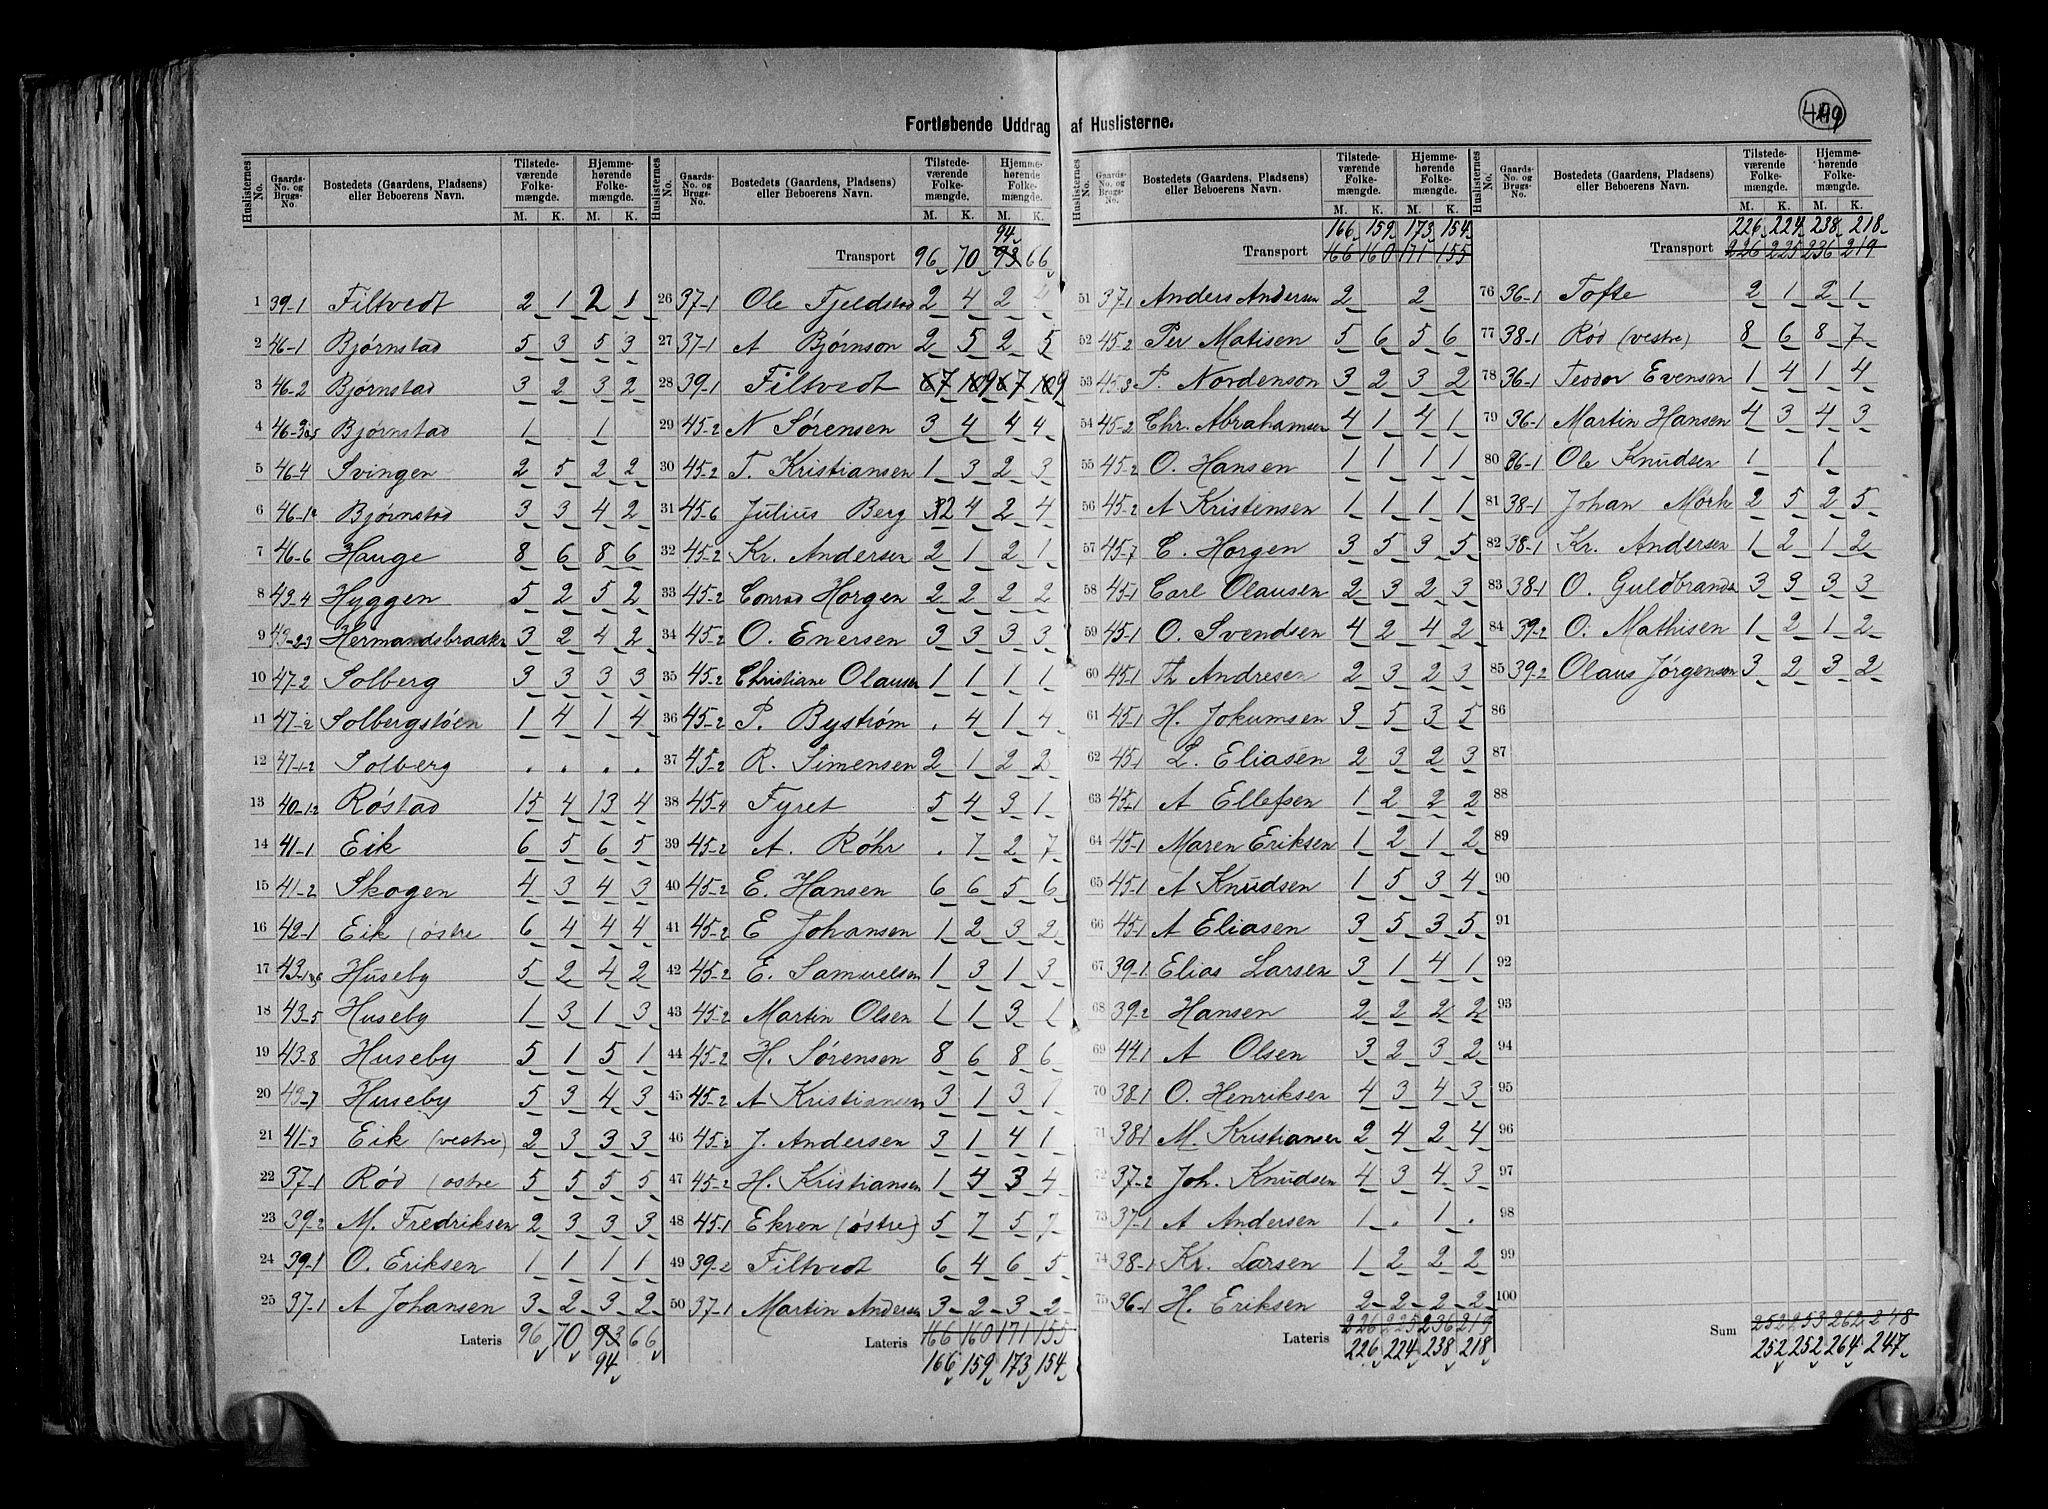 449
Fortløbende Uddrag af Huslisterne.
Huslisternes No. | Gaards-No. og Brugs-No. | Bostedets (Gaardens, Pladsens) eller Beboerens Navn. | Tilstedeværende Folkemængde. M. K. | Hjemmehørende Folkemængde. M. K.
1 39-1 Filtvedt 2 1 2 1
2 46-1 Bjørnstad 5 3 5 3
3 46-2 Bjørnstad 3 2 3 2
4 46-3 Bjørnstad 1 1
5 46-4 Svingen 2 5 2 2
6 46-1 Bjørnstad 3 3 4 2
7 46-6 Hauge 8 6 8 6
8 43-4 Hyggen 5 2 5 2
9 43-2-3 Hermandsbraaten 3 2 4 2
10 47-2 Solberg 3 3 3 3
11 47-2 Solbergstøen 1 4 1 4
12 47-1-2 Solberg . . . .
13 40-1-2 Røstad 15 4 13 4
14 41-1 Eik 6 5 6 5
15 41-2 Skogen 4 3 4 3
16 42-1 Eik (østre 6 4 4 4
17 43-1 Huseby 5 2 4 2
18 43-5 Huseby 1 3 1 3
19 43-8 Huseby 5 1 5 1
20 43-7 Huseby 5 3 4 3
21 41-3 Eik (vestre) 2 3 3 3
22 37-1 Rød (østre 5 5 5 5
23 39-2 M. Fredriksen 2 3 3 3
24 39-1 O. Eriksen 1 1 1 1
25 37-1 A Johansen 3 2 3 2
Lateris 96 70 93 66
94
Huslisternes No. | Gaards-No. og Brugs-No. | Bostedets (Gaardens, Pladsens) eller Beboerens Navn. | Tilstedeværende Folkemængde. M. K. | Hjemmehørende Folkemængde. M. K.
94
Transport 96 70 93 66
26 37-1 Ole Fjeldstad 2 4 2 4
27 37-1 A Bjørnson 2 5 2 5
28 39-1 Filtvedt 7 9 7 9
29 45-2 N Sørensen 3 4 4 4
30 45-2 T. Kristiansen 1 3 2 3
31 45-6 Julius Berg 2 4 2 4
32 45-2 Kr. Andersen 2 1 2 1
33 45-2 Conrad Horgen 2 2 2 2
34 45-2 O. Enersen 3 3 3 3
35 45-2 Christiane Olausen 1 1 1 1
36 45-2 P. Bystrøm . 4 1 4
37 45-2 R. Simensen 2 1 2 2
38 45-4 Fyret 5 4 3 1
39 45-2 A. Røhr . 7 2 7
40 45-2 E. Hansen 6 6 5 6
41 45-2 E Johansen 1 2 3 2
42 45-2 E. Samuelsen 1 3 1 3
43 45-2 Martin Olsen 1 1 3 1
44 45-2 H. Sørensen 8 6 8 6
45 45-2 A Kristiansen 3 1 3 1
46 45-2 J. Andersen 3 1 4 1
47 45-2 H. Kristiansen 1 4 3 4
48 45-1 Ekren (østre) 5 7 5 7
49 39-2 Filtvedt 6 4 6 5
50 37-1 Martin Andersen 3 2 3 2
Lateris 166 160 171 155
166 159 173 154
Huslisternes No. | Gaards-No. og Brugs-No. | Bostedets (Gaardens, Pladsens) eller Beboerens Navn. | Tilstedeværende Folkemængde. M. K. | Hjemmehørende Folkemængde. M. K.
166 159 173 154
Transport 166 160 171 155
51 37-1 Anders Andersen 2 2
52 45-2 Per Matisen 5 6 5 6
53 45-3 P. Nordenson 3 2 3 2
54 45-2 Chr. Abrahamsen 4 1 4 1
55 45-2 O. Hansen 1 1 1 1
56 45-2 A Kristensen 1 1 1 1
57 45-7 C. Horgen 3 5 3 5
58 45-1 Carl Olausen 2 3 2 3
59 45-1 O. Svendsen 4 2 4 2
60 45-1 Th Andresen 2 3 2 3
61 45-1 H. Jokumsen 3 5 3 5
62 45-1 L. Eliasen 2 3 2 3
63 45-1 A Ellefsen 1 2 2 2
64 45-1 Maren Eriksen 1 2 1 2
65 45-1 A Knudsen 1 5 3 4
66 45-1 A Eliasen 3 5 3 5
67 39-1 Elias Larsen 3 1 4 1
68 39-2 Hansen 2 2 2 2
69 44-1 A Olsen 3 2 3 2
70 38-1 O. Henriksen 4 3 4 3
71 38-1 M. Kristiansen 2 4 2 4
72 37-2 Joh. Knudsen 4 3 4 3
73 37-1 A Andersen 1 . 1 .
74 38-1 Kr. Larsen 1 2 2 2
75 36-1 H. Eriksen 2 2 2 2
Lateris 226 225 236 219
226 224 238 218
Huslisternes No. | Gaards-No. og Brugs-No. | Bostedets (Gaardens, Pladsens) eller Beboerens Navn. | Tilstedeværende Folkemængde. M. K. | Hjemmehørende Folkemængde. M. K.
226 224 238 218
Transport 226 225 236 219
76 36-1 Tofte 2 1 2 1
77 38-1 Rød (vestre) 8 6 8 7
78 36-1 Teodor Evensen 1 4 1 4
79 36-1 Martin Hansen 4 3 4 3
80 36-1 Ole Knudsen 1 1
81 38-1 Johan Mörk 2 5 2 5
82 38-1 Kr. Andersen 1 2 1 2
83 38-1 O. Guldbrands 3 3 3 3
84 39-2 O. Mathisen 1 2 1 2
85 39-2 Olaus Jørgensen 3 2 3 2
86
87
88
89
90
91
92
93
94
95
96
97
98
99
100
Sum 252 253 262 248
252 252 264 247